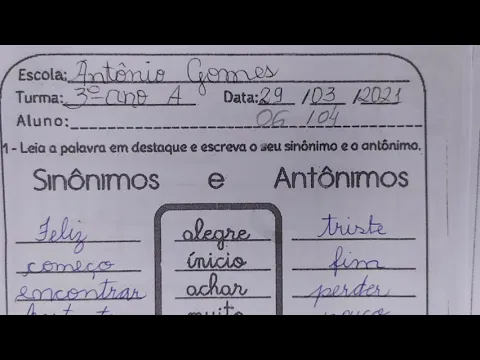 Escola: Antônio Gomes
Turma: 3º ano A Data: 29 /03 /2021
Aluno: 06 /04
1 - Leia a palavra em destaque e escreva o seu sinônimo e o antônimo.
Sinônimos e Antônimos
Feliz alegre triste
começo ínicio fim
encontrar achar perder
muito